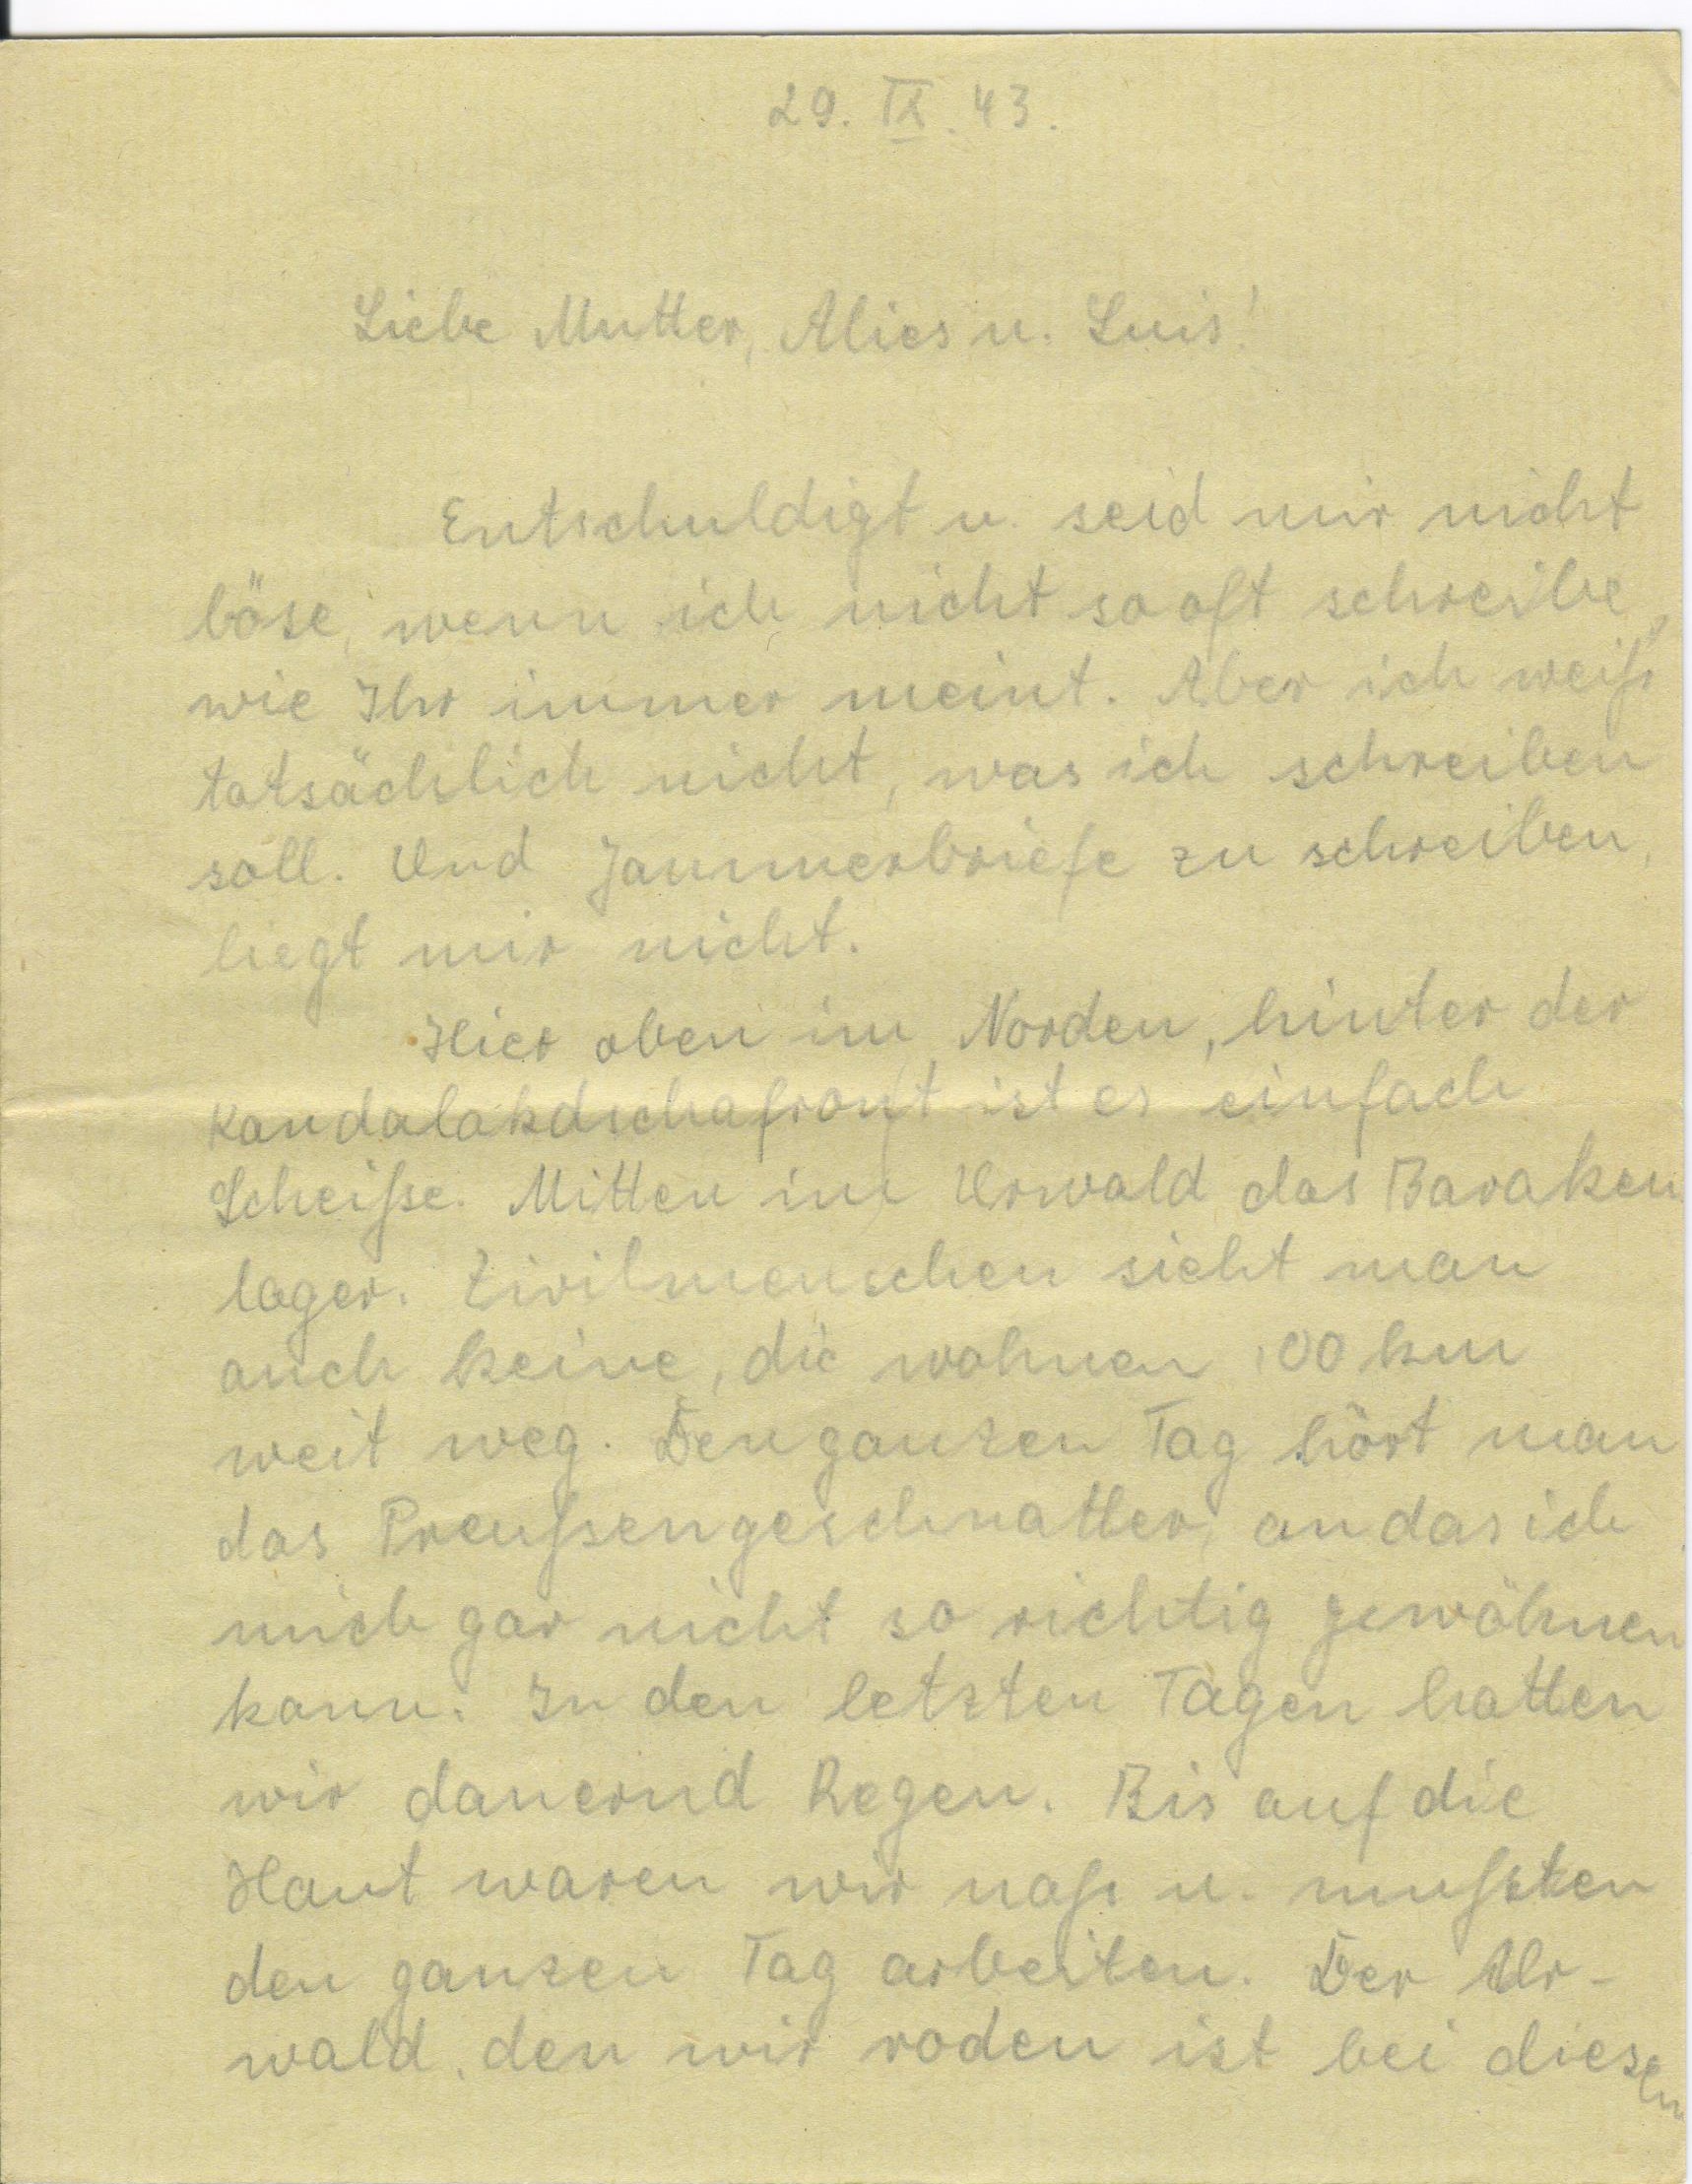 29. IX. 43.
Liebe Mutter, Alies u. Luis!
Entschuldigt u. seid mir nicht
böse, wenn ich nicht so oft schreibe,
wie Ihr immer meint. Aber ich weiß
tatsächlich nicht, was ich schreiben
soll. Und Jammerbriefe zu schreiben,
liegt mir nicht.
Hier oben im Norden, hinter der
Kandalakdschafront ist es einfach
Scheiße. Mitten im Urwald das Baraken
lager. Zivilmenschen sieht man
auch keine, die wohnen 100 km
weit weg. Den ganzen Tag hört man
das Preußengeschnatter, an das ich
mich gar nicht so richtig gewöhnen
kann. In den letzten Tagen hatten
wir dauernd Regen. Bis auf die
Haut waren wir naß u. mußten
den ganzen Tag arbeiten. Der Ur-
wald, den wir roden ist bei diesen